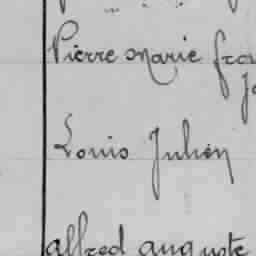 Pierre Marie
Louis Julien
alfred auguste